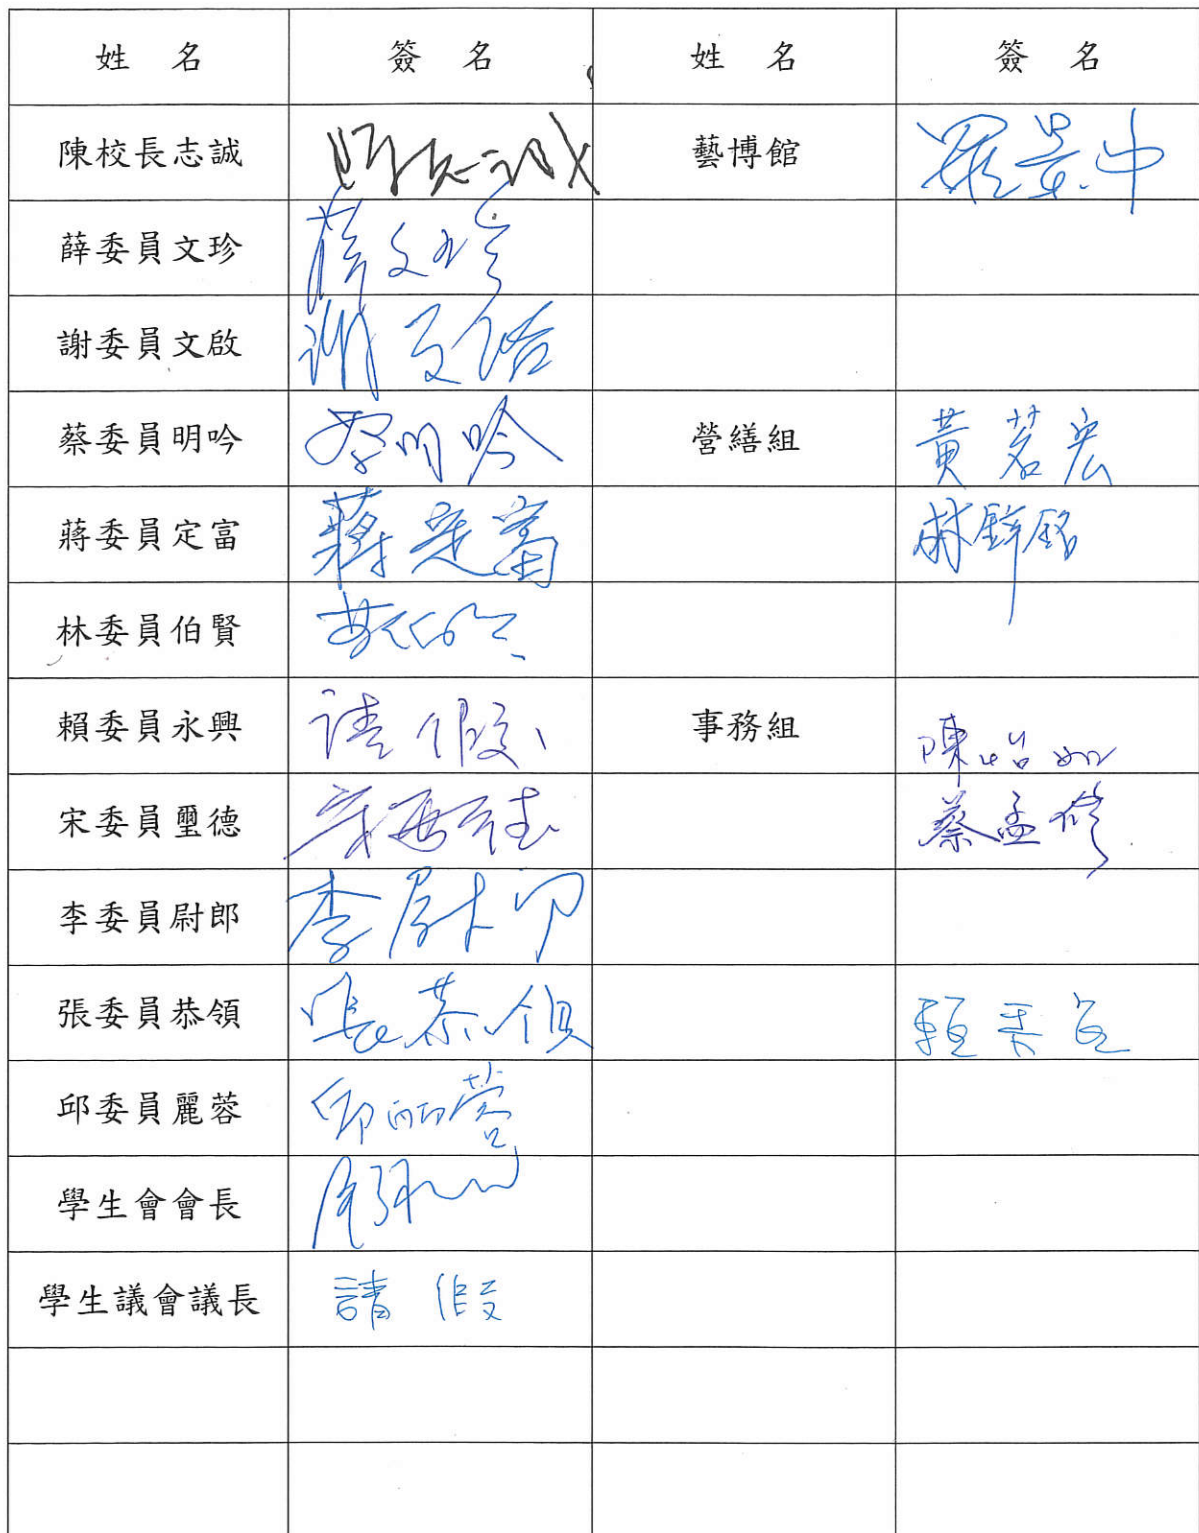 姓 名 簽 名 姓 名 簽 名
陳校長志誠 陳志誠 藝博館 羅景中
薛委員文珍 薛文珍
謝委員文啟 謝文啟
蔡委員明吟 蔡明吟 營繕組 黃茗宏
蔣委員定富 蔣定富 林銘
林委員伯賢 林伯賢
賴委員永興 请假 事務組 陳怡如
宋委員璽德 宋璽德 蔡孟修
李委員尉郎 李尉郎
張委員恭領 張恭領
邱委員麗蓉 邱麗蓉
學生會會長
學生議會議長 請假